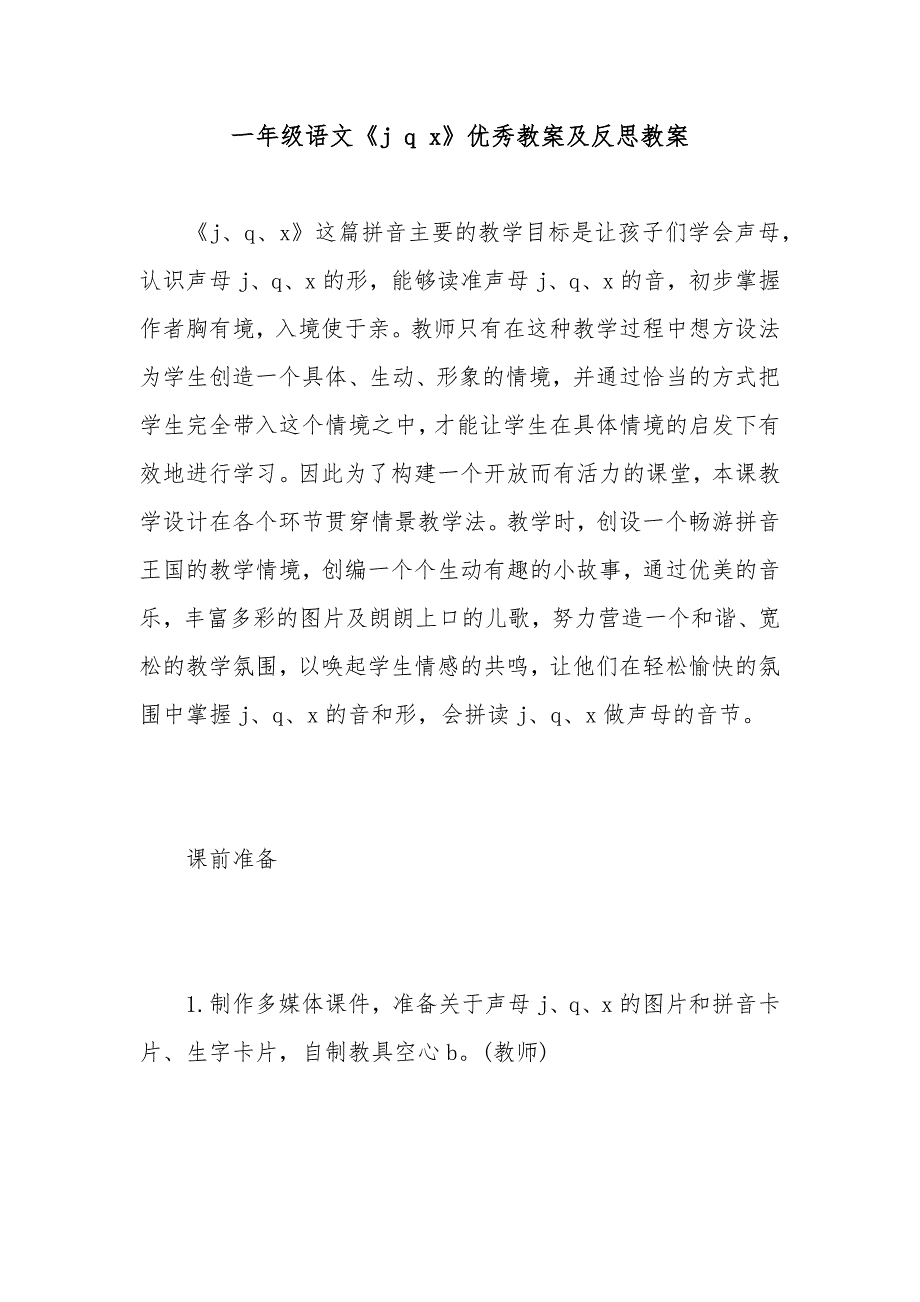 一年级语文《j q x》优秀教案及反思教案
《j、q、x》这篇拼音主要的教学目标是让孩子们学会声母，
认识声母 j、q、x 的形，能够读准声母 j、q、x 的音，初步掌握
作者胸有境，入境使于亲。教师只有在这种教学过程中想方设法
为学生创造一个具体、生动、形象的情境，并通过恰当的方式把
学生完全带入这个情境之中，才能让学生在具体情境的启发下有
效地进行学习。因此为了构建一个开放而有活力的课堂，本课教
学设计在各个环节贯穿情景教学法。教学时，创设一个畅游拼音
王国的教学情境，创编一个个生动有趣的小故事，通过优美的音
乐，丰富多彩的图片及朗朗上口的儿歌，努力营造一个和谐、宽
松的教学氛围，以唤起学生情感的共鸣，让他们在轻松愉快的氛
围中掌握 j、q、x 的音和形，会拼读 j、q、x 做声母的音节。
课前准备
1.制作多媒体课件，准备关于声母 j、q、x 的图片和拼音卡
片、生字卡片，自制教具空心 b。(教师)